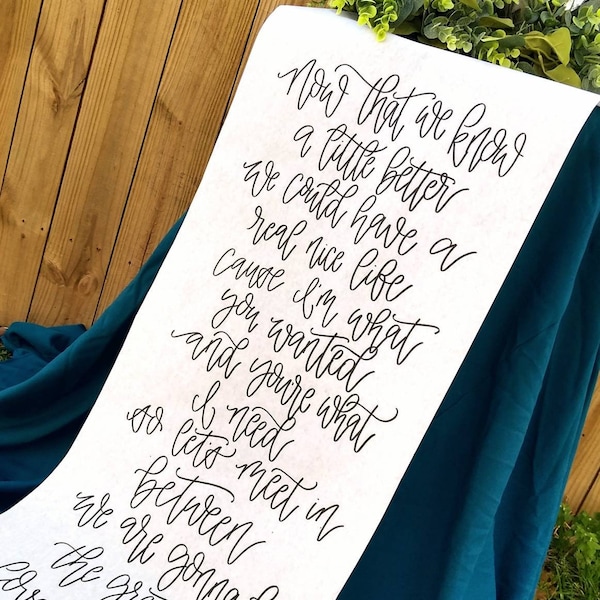 Now that we know
a little better
we could have a
real nice life
cause I'm what
you wanted
and you're what
I need
so let's meet in
between
we are gonna
the